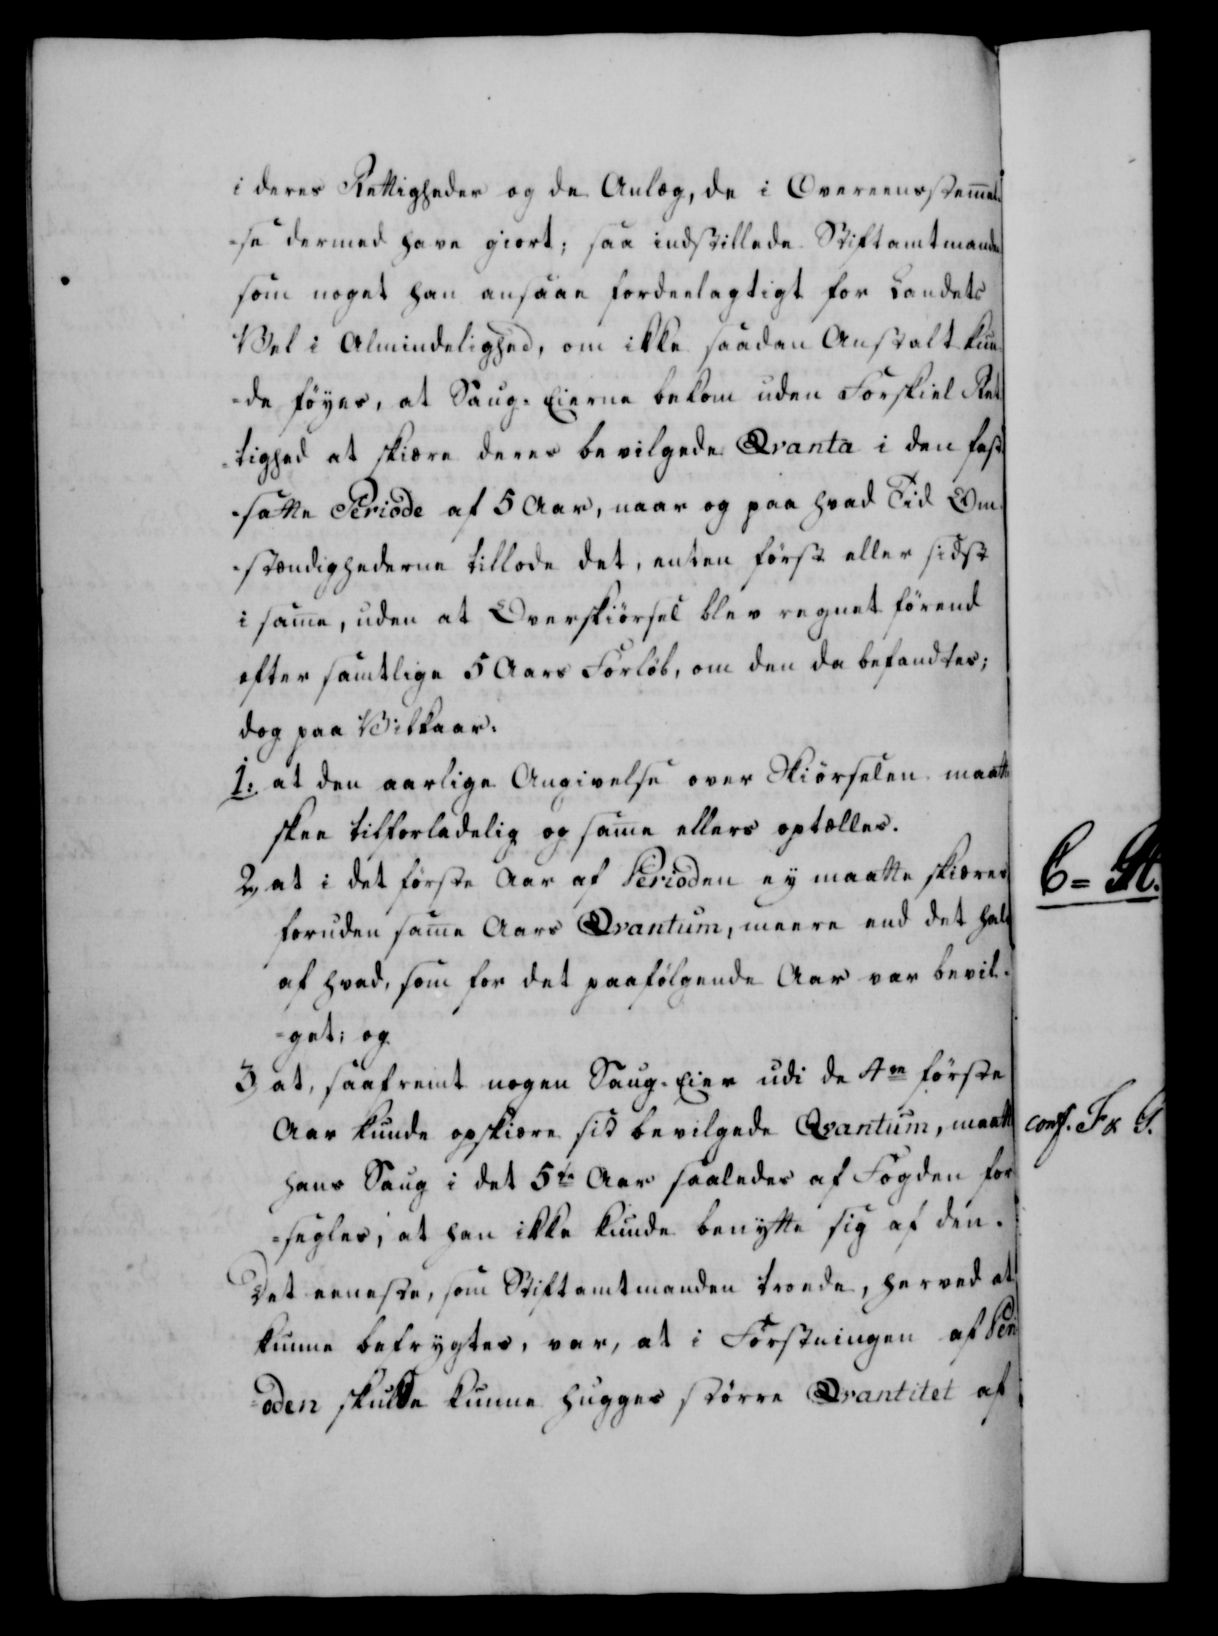 i deres Rettigheder og de Anlæg, de i Overeensstem̄el-
-se dermed have giort; saa indstillede Stiftamtmanden
som noget han ansaae fordeelagtigt for Landets
Vel i Almindelighed, om ikke saadan Anstalt kun-
-de føyes, at Saug-Eierne bekom uden Forskiel Ret
-tighed at skiære deres bevilgede Qvanta i den fast-
-satte Periode af 5 Aar, naar og paa hvad Tid Om-
-stændighederne tillode det, enten først eller sidst
i sam̄e, uden at Overskiørsel blev regnet førend
efter samtlige 5 Aars Forløb, om den da befandtes;
dog paa Vilkaar.
1: at den aarlige Angivelse over Skiørselen maatte
skee tilforladelig og sam̄e ellers optælles.
2, at i det første Aar af Perioden ey maatte skiæres
foruden sam̄e Aars Qvantum, meere end det halve
af hvad, som for det paafølgende Aar var bevil-
-get; og
3, at, saafremt nogen Saug-Eier udi de 4re første
Aar kunde opskiære sit bevilgede Qvantum, maatte
hans Saug i det 5te Aar saaledes af Fogden for
-segles, at han ikke kunde benytte sig af den.
Det eeneste, som Stiftamtmanden troede, herved at
kunne befrygtes, var, at i Førstningen af Peri
-oden skulde kunne hugges større Qvantitet af
conf. F &